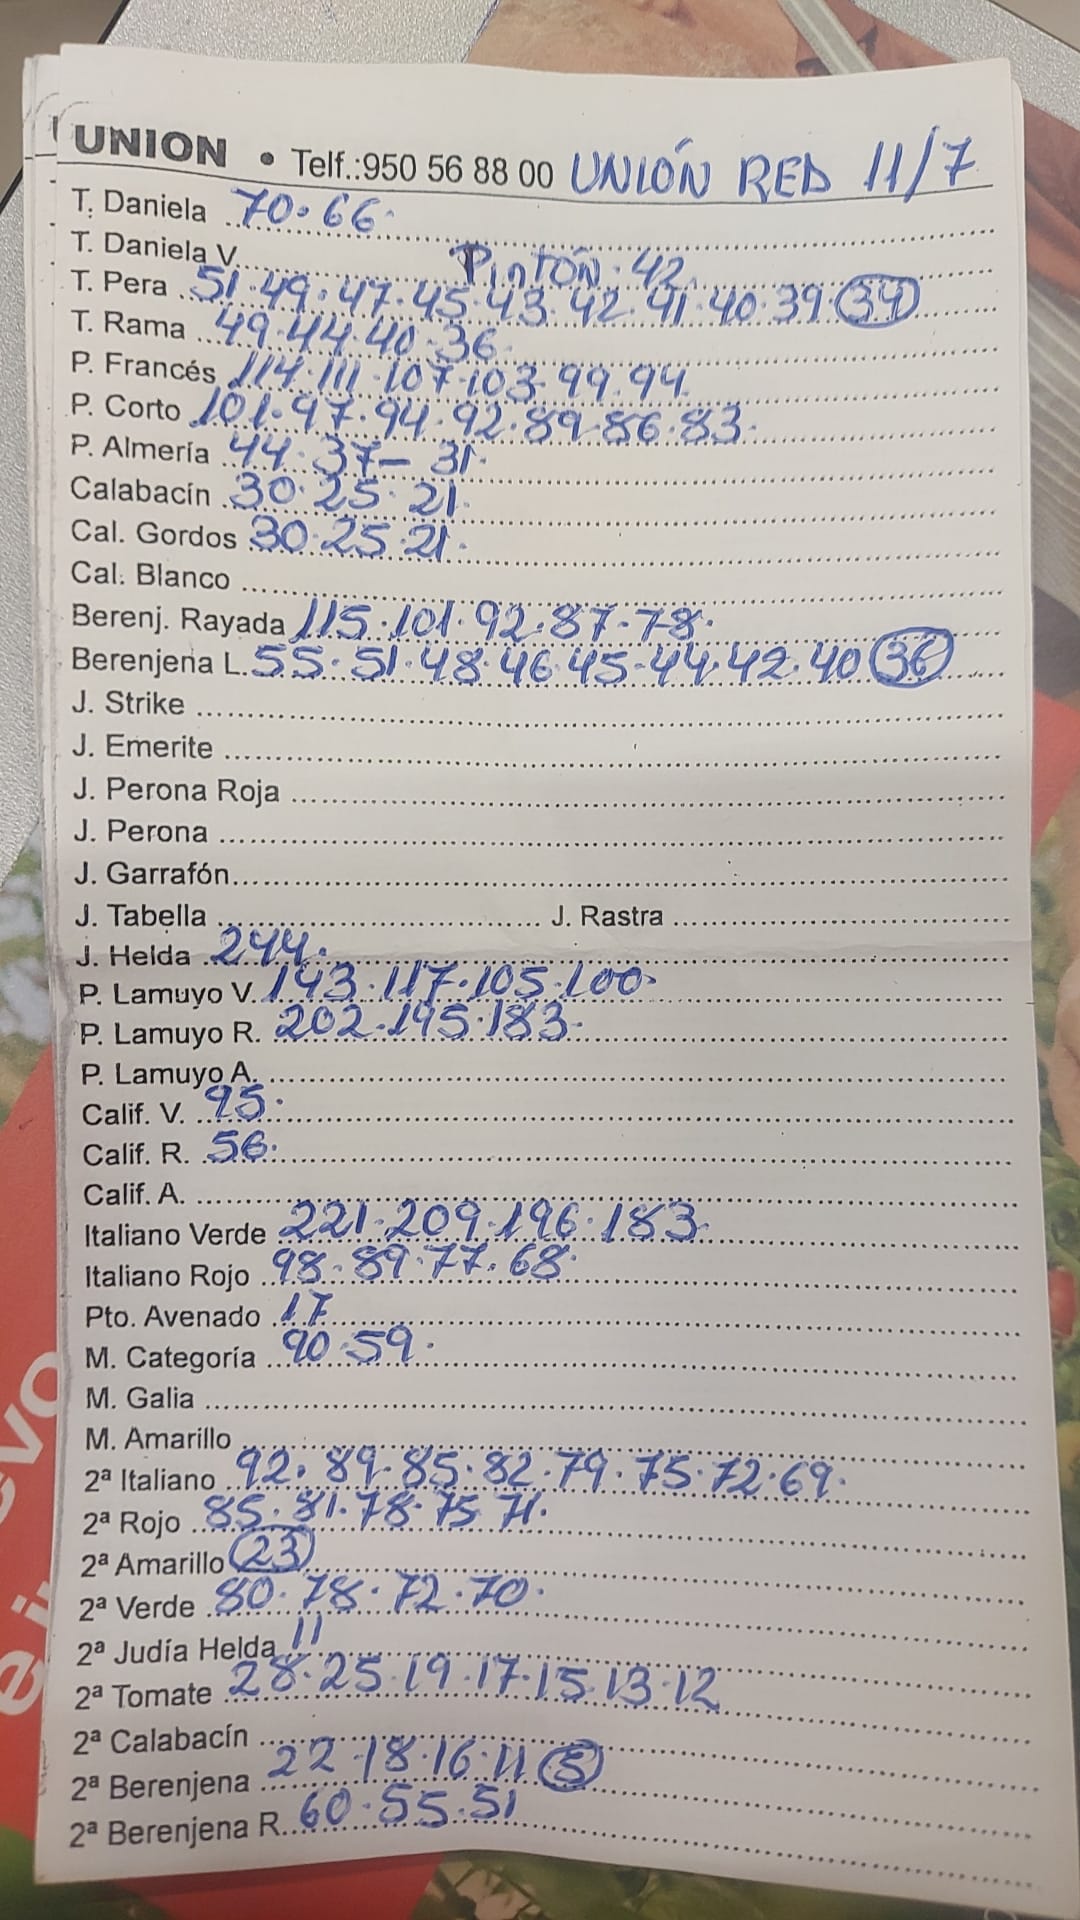 UNION • Telf.:950 56 88 00 UNIÓN RED 11/7
T. Daniela 70.66.
T. Daniela V. Pintón.42.
T. Pera 51.49.47.45.43.42.41.40.39 (34)
T. Rama 49.44.40.36
P. Francés 114.111.107.103.99.94
P. Corto 101.97.94.92.89.86.83.
P. Almería 44.37-31.
Calabacín 30.25.21.
Cal. Gordos 30.25.21.
Cal. Blanco
Berenj. Rayada 115.101.92.87.78.
Berenjena L. 55.51.48.46.45.44.42.40 (36)
J. Strike
J. Emerite
J. Perona Roja
J. Perona
J. Garrafón
J. Tabella J. Rastra
J. Helda 244.
P. Lamuyo V. 143.117.105.100.
P. Lamuyo R. 202.195.183.
P. Lamuyo A.
Calif. V. 95.
Calif. R. 56.
Calif. A.
Italiano Verde 221.209.196.183.
Italiano Rojo 98.89.77.68.
Pto. Avenado 17
M. Categoría 90.59.
M. Galia
M. Amarillo
2ª Italiano 92.89.85.82.79.75.72.69.
2ª Rojo 85.81.78.75 71.
2ª Amarillo (23)
2ª Verde 80.78.72.70.
2ª Judía Helda 11
2ª Tomate 28.25.19.17.15.13.12
2ª Calabacín
2ª Berenjena 22.18.16.11 (5)
2ª Berenjena R. 60.55.51